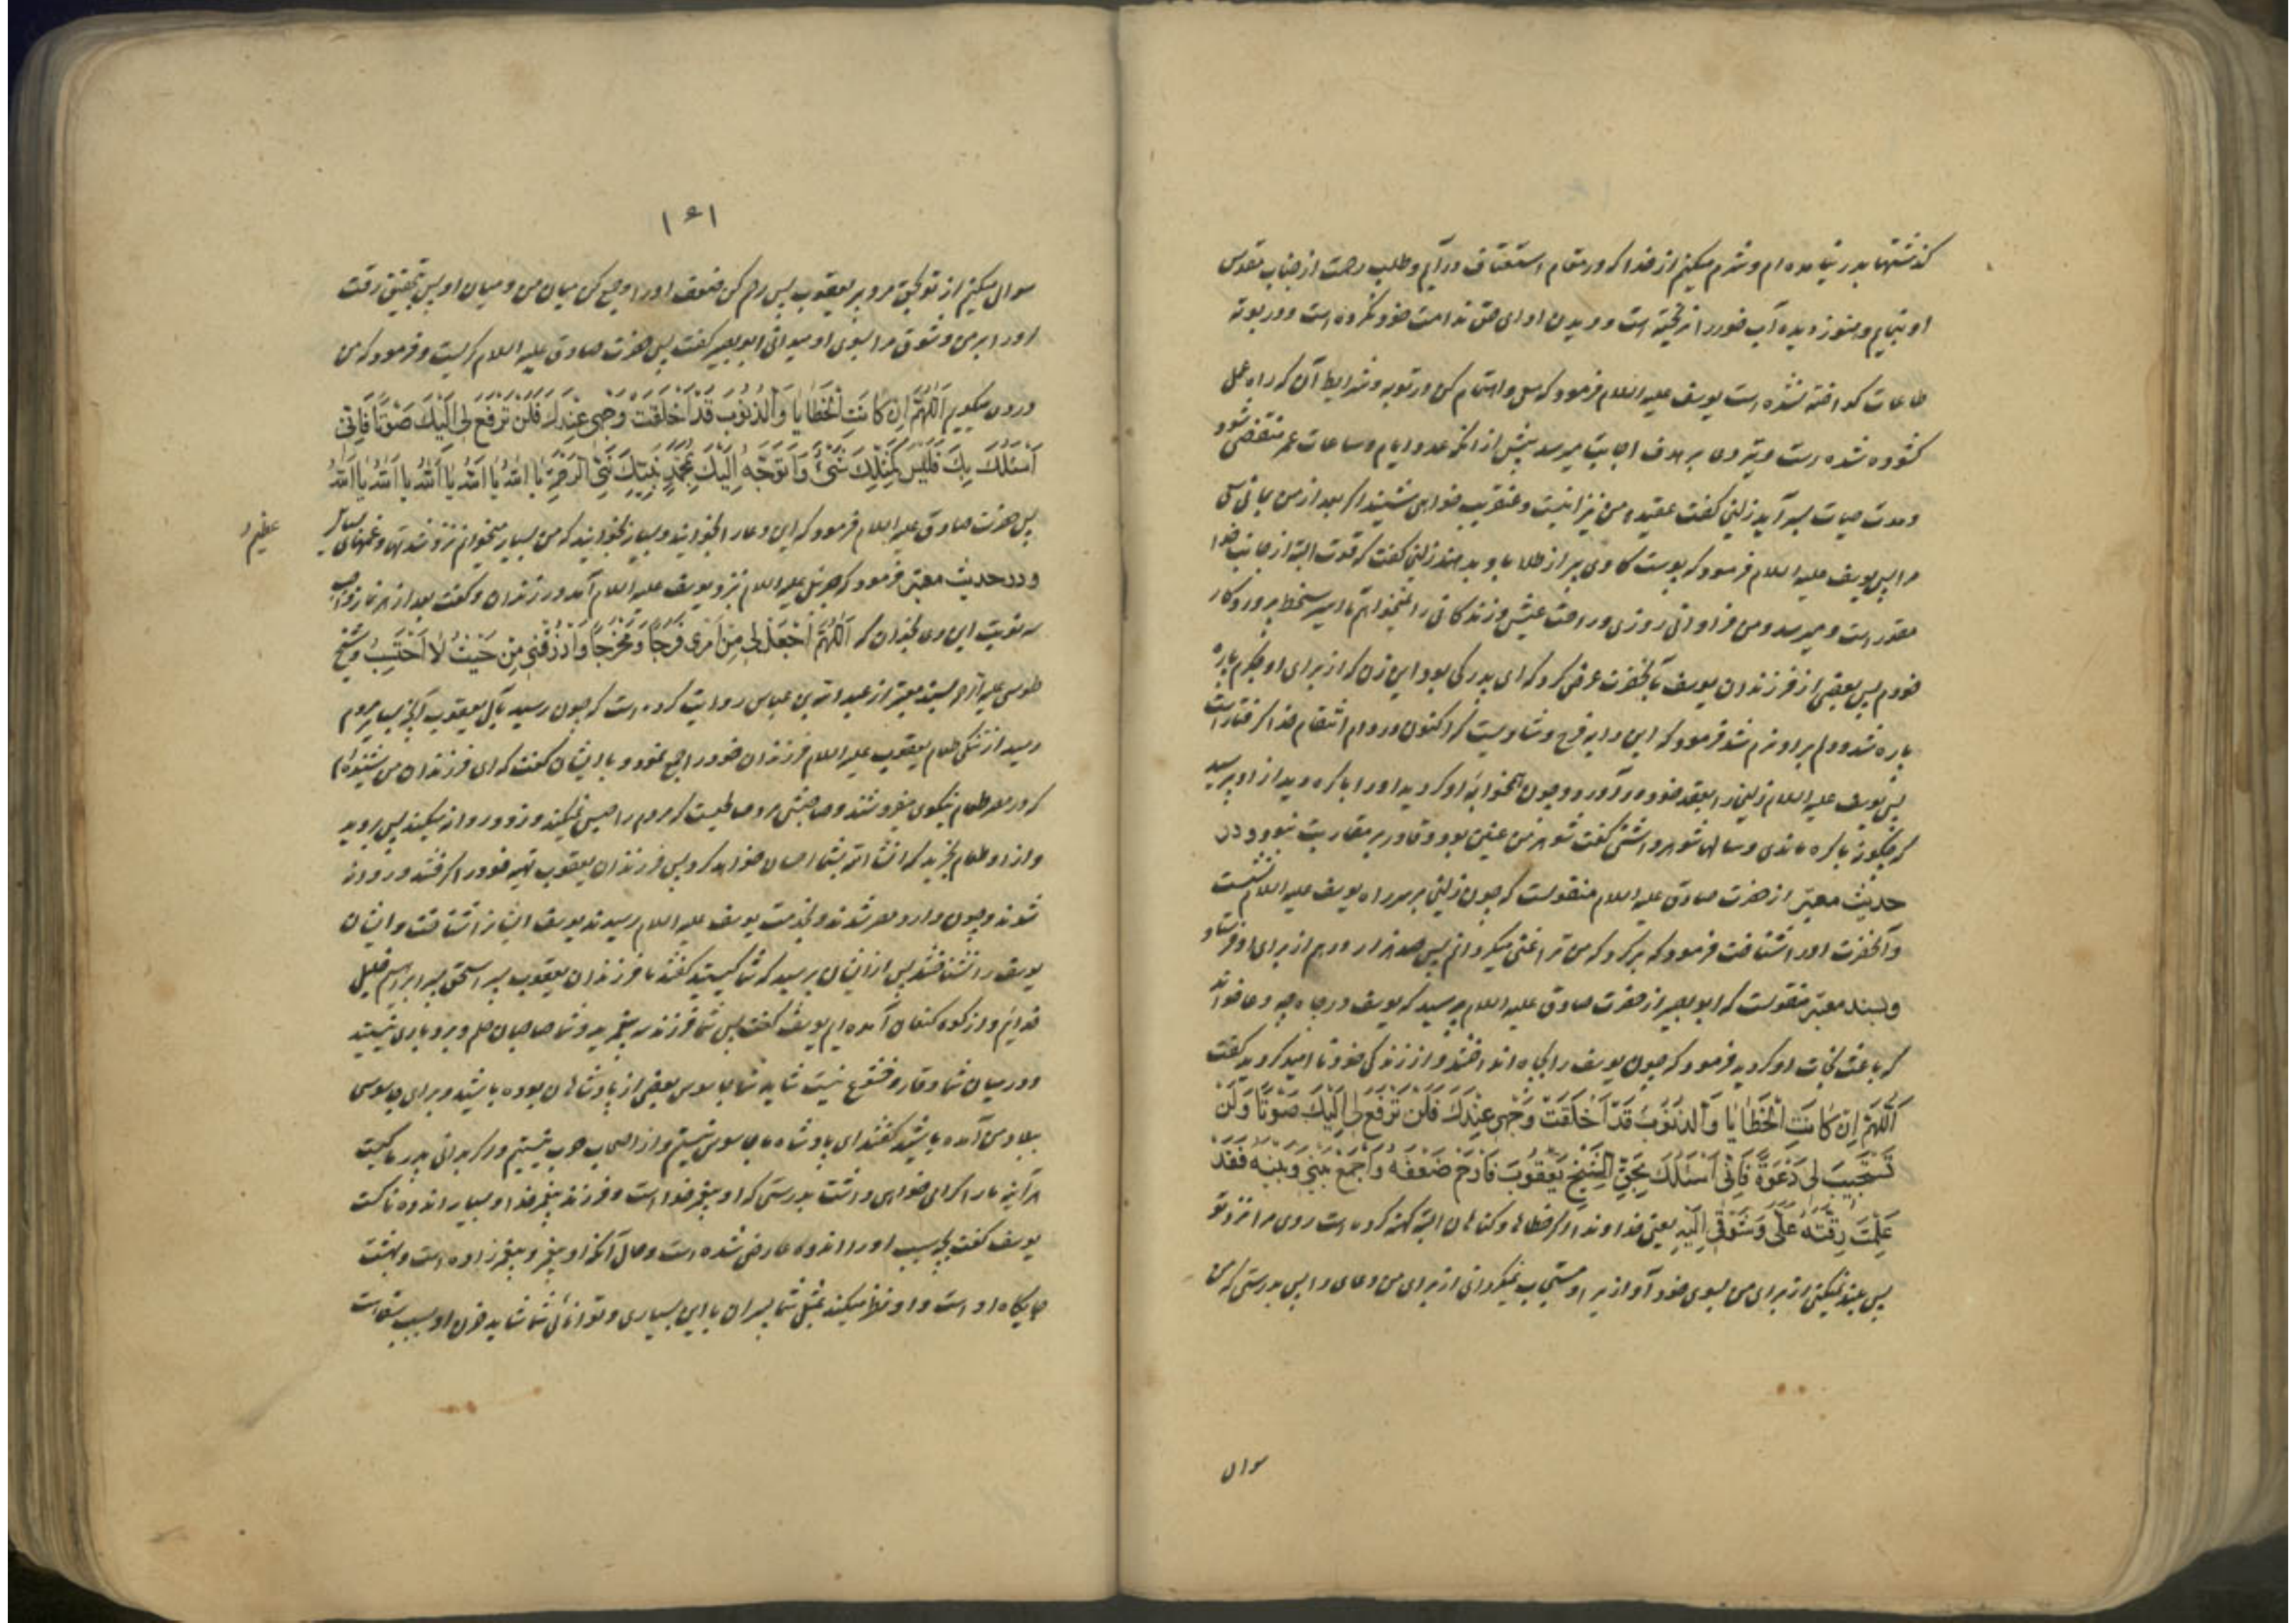 کذشتها بدر نیامده ام و شرم میکنم از خدا که در مقام استعفاف درآیم و طلب رحمت از جناب مقدس
او نمایم و هنوز دیده آب خود را نریخته است و بدن ادای حق ندامت خود نکرده است و در بوته
طاعات کداخته نشده است یوسف علیه السلام فرمود که سعی و اهتمام کن در توبه و شرایط آن که راه عمل
کشوده شده است و تیر دعا بر هدف اجابت میرسد پیش از آنکه عدد ایام و ساعات عمر منقضی شود
و مدت حیات بسر آید زلیخا کفت عقیده من نیز اینست و عنقریب خواهی شنید اکر بعد از من بمانی سعی
مرا پس یوسف علیه السلام فرمود که پوست کاوی پر از طلا باو بدهند زلیخا کفت که قوت البته از جانب خدا
مقدر است و میرسد و من فراوانی روزی و راحت عیش و زندکانی را نمیخواهم تا اسیر سخط پروردکار
خودم پس بعضی از فرزندان یوسف بآنحضرت عرض کرد که ای پدر کی بود این زن که از برای او جکرم پاره
پاره شد و دلم بر او نرم شد فرمود که این دابه فرح و شادیست که اکنون در دام انتقام خدا کرفتار است
پس یوسف علیه السلام زلیخا را بعقد خود درآورد و چون همخوابه او کردید او را باکره دید از او پرسید
که چکونه باکره ماندی و سالها شوهر داشتی کفت شوهر من عنین بود و قادر بر مقاربت نبود و در
حدیث معتبر از حضرت صادق علیه السلام منقولست که چون زلیخا بر سر راه یوسف علیه السلام نشست
و آنحضرت او را شناخت فرمود که برکرد که من ترا غنی میکردانم پس صد هزار درهم از برای او فرستاد
و بسند معتبر منقولست که ابوبصیر از حضرت صادق علیه السلام پرسید که یوسف در چاه چه دعا خواند
که باعث نجات او کردید فرمود که چون یوسف را بچاه انداختند و از زندکی خود ناامید کردید کفت
اَللّهُمَّ اِنْ کانَتِ الْخَطایا وَالذُّنُوبَ قَدْ اَخْلَقَتْ وَجْهی عِنْدَکَ فَلَنْ تَرْفَعَ لی اِلَیْکَ صَوْتًا وَلَنْ
تَسْتَجیبَ لی دَعْوَةً فَاِنّی اَسْئَلُکَ بِحَقِّ الشَّیْخِ یَعْقُوبَ فَارْحَمْ ضَعْفَهُ وَاجْمَعْ بَیْنی وَبَیْنَهُ فَقَدْ
عَلِمْتَ رِقَّتَهُ عَلَیَّ وَشَوْقی اِلَیْهِ یعنی خداوندا اکر خطاها و کناهان البته کهنه کرده است روی مرا نزد تو
پس بلند نمیکنی از برای من بسوی خود آواز یرا و مستجاب نمیکردانی از برای من دعای را پس بدرستی که من
سوال
۱۶۱
سوال میکنم از تو بحق مرد پیر یعقوب پس رحم کن ضعف او را و جمع کن میان من و میان او پس بتحقیق رقت
او را بر من و شوق مرا بسوی او میدانی ابوبصیر کفت پس حضرت صادق علیه السلام کریست و فرمود که من
در دعا میکویم اَللّهُمَّ اِنْ کانَتِ الْخَطایا وَالذُّنُوبَ قَدْ اَخْلَقَتْ وَجْهی عِنْدَکَ فَلَنْ تَرْفَعَ لی اِلَیْکَ صَوْتًا فَاِنّی
اَسْئَلُکَ بِکَ فَلَیْسَ کَمِثْلِکَ شَیْءٌ وَاَتَوَجَّهُ اِلَیْکَ بِمُحَمَّدٍ نَبِیِّکَ نَبِیِّ الرَّحْمَةِ یا اَللّهُ یا اَللّهُ یا اَللّهُ یا اَللّهُ یا اَللّهُ
پس حضرت صادق علیه السلام فرمود که این دعا را بخوانید و بسیار بخوانید که من بسیار میخوانم نزد شدتها و غمهای بسیار
عظیم
و در حدیث معتبر فرمود که جبرئیل علیه السلام نزد یوسف علیه السلام آمد در زندان و کفت بعد از هر نماز واجب
سه نوبت این دعا بخوان که اَللّهُمَّ اجْعَلْ لی مِنْ اَمْری فَرَجًا وَمَخْرَجًا وَارْزُقْنی مِنْ حَیْثُ لا اَحْتَسِبُ و شیخ
طوسی علیه الرحمه بسند معتبر از عبدالله بن عباس روایت کرده است که چون رسید بآل یعقوب آنچه بسایر مردم
رسید از تنکی طعام یعقوب علیه السلام فرزندان خود را جمع نمود و با ایشان کفت که ای فرزندان من شنیده‌ام
که در مصر طعام نیکوی میفروشند و صاحبش مرد صالحیست که مردم را حبس نمیکند و زود روانه میکند پس بروید
و از او طعام بخرید که انشاء الله بشما احسان خواهد کرد پس فرزندان یعقوب تهیه خود را کرفتند و روانه
شوند و چون وارد مصر شدند و بخدمت یوسف علیه السلام رسیدند یوسف ایشانرا شناخت و ایشان
یوسف را نشناختند پس از ایشان پرسید که شما کیستید کفتند ما فرزندان یعقوب پسر اسحق پسر ابراهیم خلیل
خدائیم و از کوه کنعان آمده ایم یوسف کفت پس شما فرزند سه پیغمبرید و شما صاحبان حلم و بردباری نیستید
و در میان شما وقار و خشوع نیست شاید شما جاسوس بعضی از پادشاهان بوده باشید و برای جاسوسی
ببلاد من آمده باشید کفتند ای پادشاه ما جاسوس نیستیم و از اصحاب حرب نیستیم و اکر بدانی پدر ما کیست
هرآینه ما را کرامی خواهی داشت بدرستی که او پیغمبر خدا است و فرزند پیغمبر خدا و بسیار اندوهناکست
یوسف کفت بچه سبب او را اندوه عارض شده است و حال آنکه او پیغمبر و پیغمبر زاده است و بهشت
جایکاه او است و او نظر میکند بمثل شما پسران با این بسیاری و توانائی شما شاید حزن او بسبب سفاهت